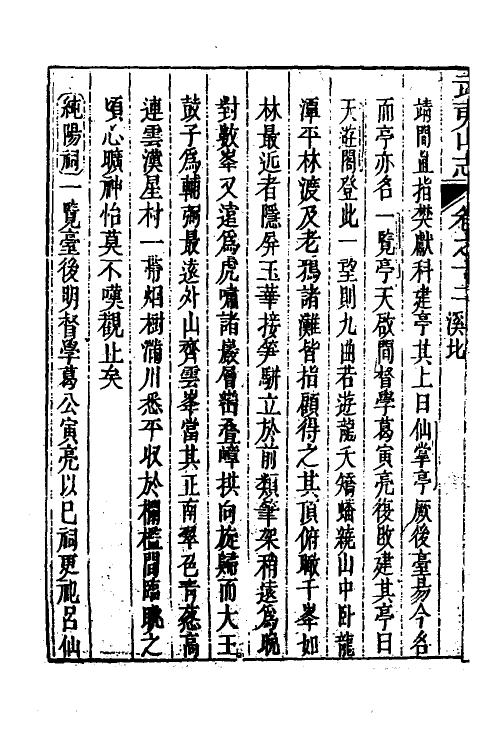 武夷山志 卷之十二 溪北
靖間直指樊獻科建亭其上曰仙掌亭厥後臺易今名
而亭亦名一覽亭天啟間督學葛寅亮復改建其亭曰
天遊閣登此一望則九曲若遊龍夭矯蟠繞山中卧龍
潭平林渡及老鴉諸灘皆指顧得之其頂俯瞰千峯如
林最近者隱屏玉華接笋駢立於前類筆架稍遠為晩
對數峯又遠為虎嘯諸巖層巒叠嶂拱向旋歸而大王
鼓子為輔弼最遠外山齊雲峯當其正南翠色青葱高
連雲漢星村一帶烟樹滿川悉平收於欄檻間臨眺之
頃心曠神怡莫不嘆觀止矣
純陽祠一覽臺後明督學葛公寅亮以巳祠更祀呂仙